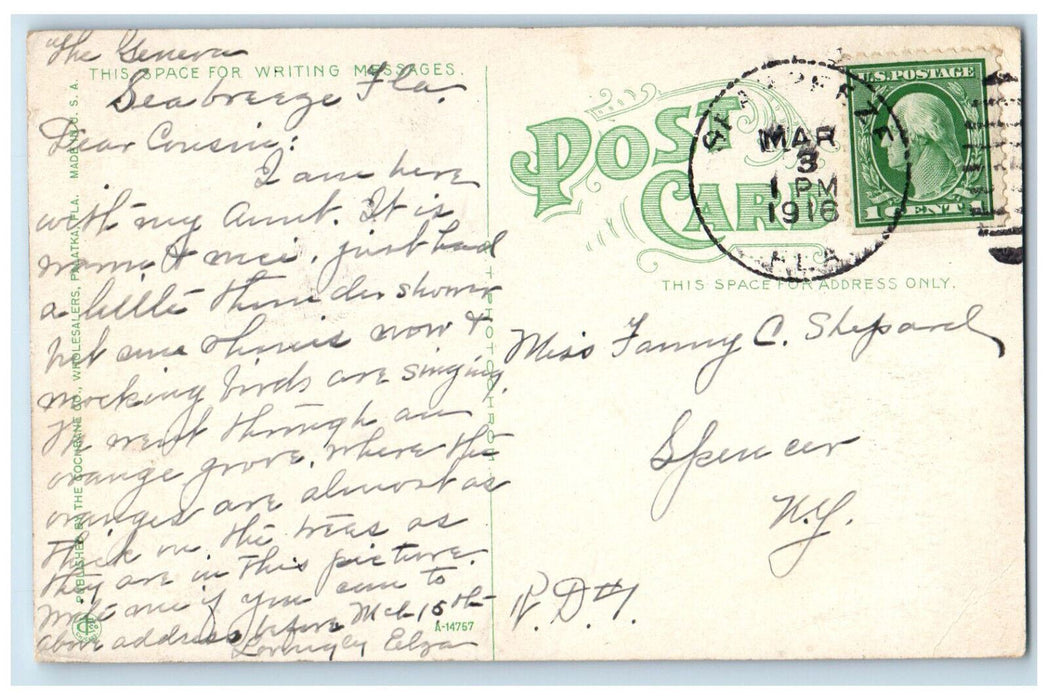 "The Geneva
THIS SPACE FOR WRITING MESSAGES.
Seabreeze Fla.
Dear Cousin:
I am here
with my Aunt. It is
warm & nice, just had
a little thunder shower
but sun shines now &
mocking birds are singing.
We went through an
orange grove, where the
oranges are almost as
thick on the trees as
they are in this picture.
Write me if you care to
above address before Mch 15th
Lovingly Eliza
PUBLISHED BY THE COCHRANE CO., WHOLESALERS, PALATKA, FLA. MADE IN U. S. A.
A-14757
POST
CARD
THIS SPACE FOR ADDRESS ONLY.
SEABREEZE
MAR
3
1 PM
1916
FLA
U.S. POSTAGE
1 CENT 1
Miss Fanny C. Shepard
Spencer
N.Y.
R.D.#1.